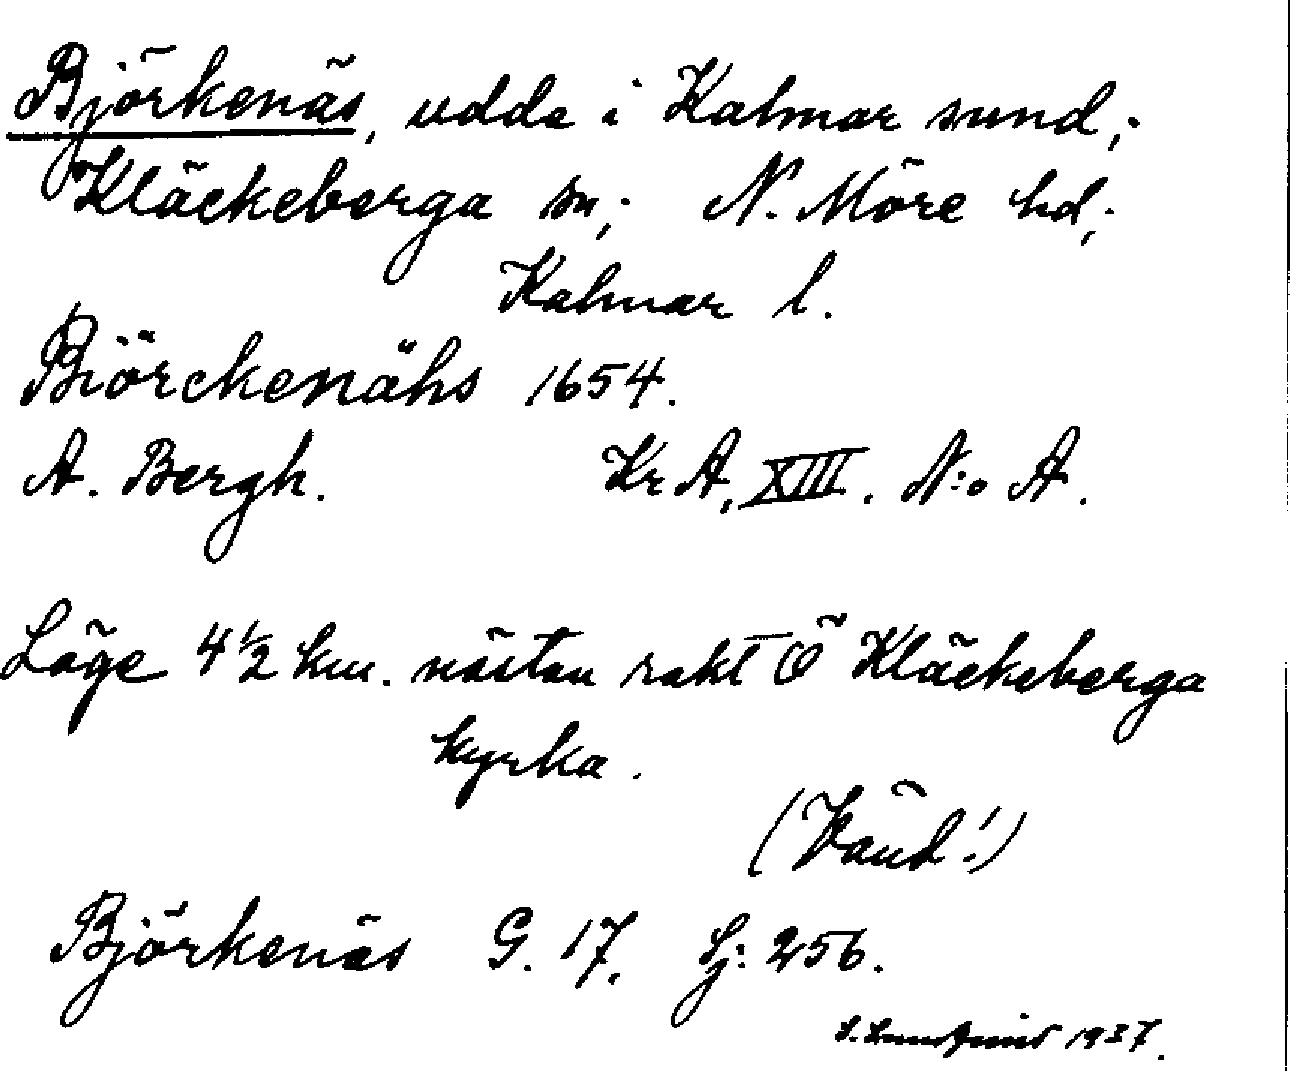 Björkenäs, udde i Kalmar sund;
Kläckeberga sn; N. Möre hd;
Kalmar l.
Biörckenähs 1654.
A. Bergh. Kr A, XIII. N:o A.
Läge 4 1/2 km. nästan rakt Ö Kläckeberga
kyrka.
(Vänd!)
Björkenäs G. 17. Sj: 256.
1937.